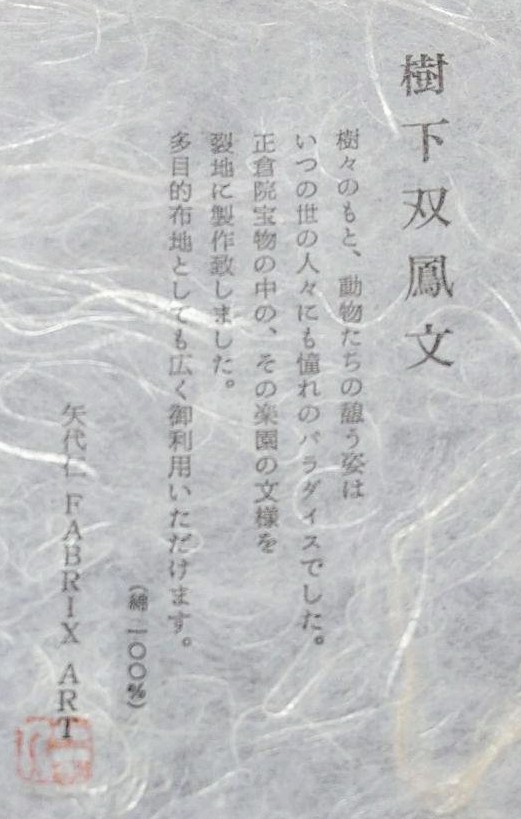 樹下双鳳文
樹々のもと、動物たちの憩う姿は
いつの世の人々にも憧れのパラダイスでした。
正倉院宝物の中の、その楽園の文様を
裂地に製作致しました。
多目的布地としても広く御利用いただけます。
（綿一〇〇％）
矢代仁 FABRIX ART